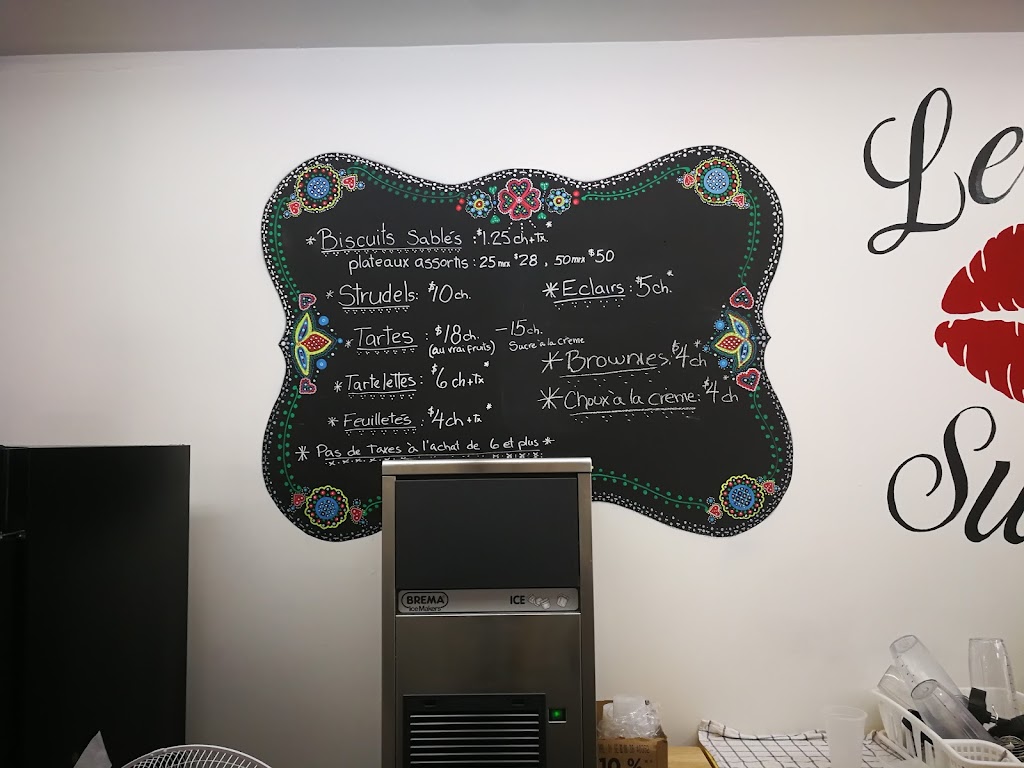 * Biscuits Sablés : $1.25 ch + Tx. *
plateaux assortis : 25 mrx $28 , 50 mrx $50
* Strudels : $10 ch.
* Eclairs : $5 ch. *
* Tartes : $18 ch. - 15 ch.
(au vrai fruits) Sucre à la crème
* Brownies : $4 ch *
* Tartelettes : $6 ch + Tx *
* Choux à la crème : $4 ch *
* Feuilletés : $4 ch + Tx *
* Pas de Taxes à l'achat de 6 et plus *
Le
Su
BREMA
Ice Makers
ICE
10 %